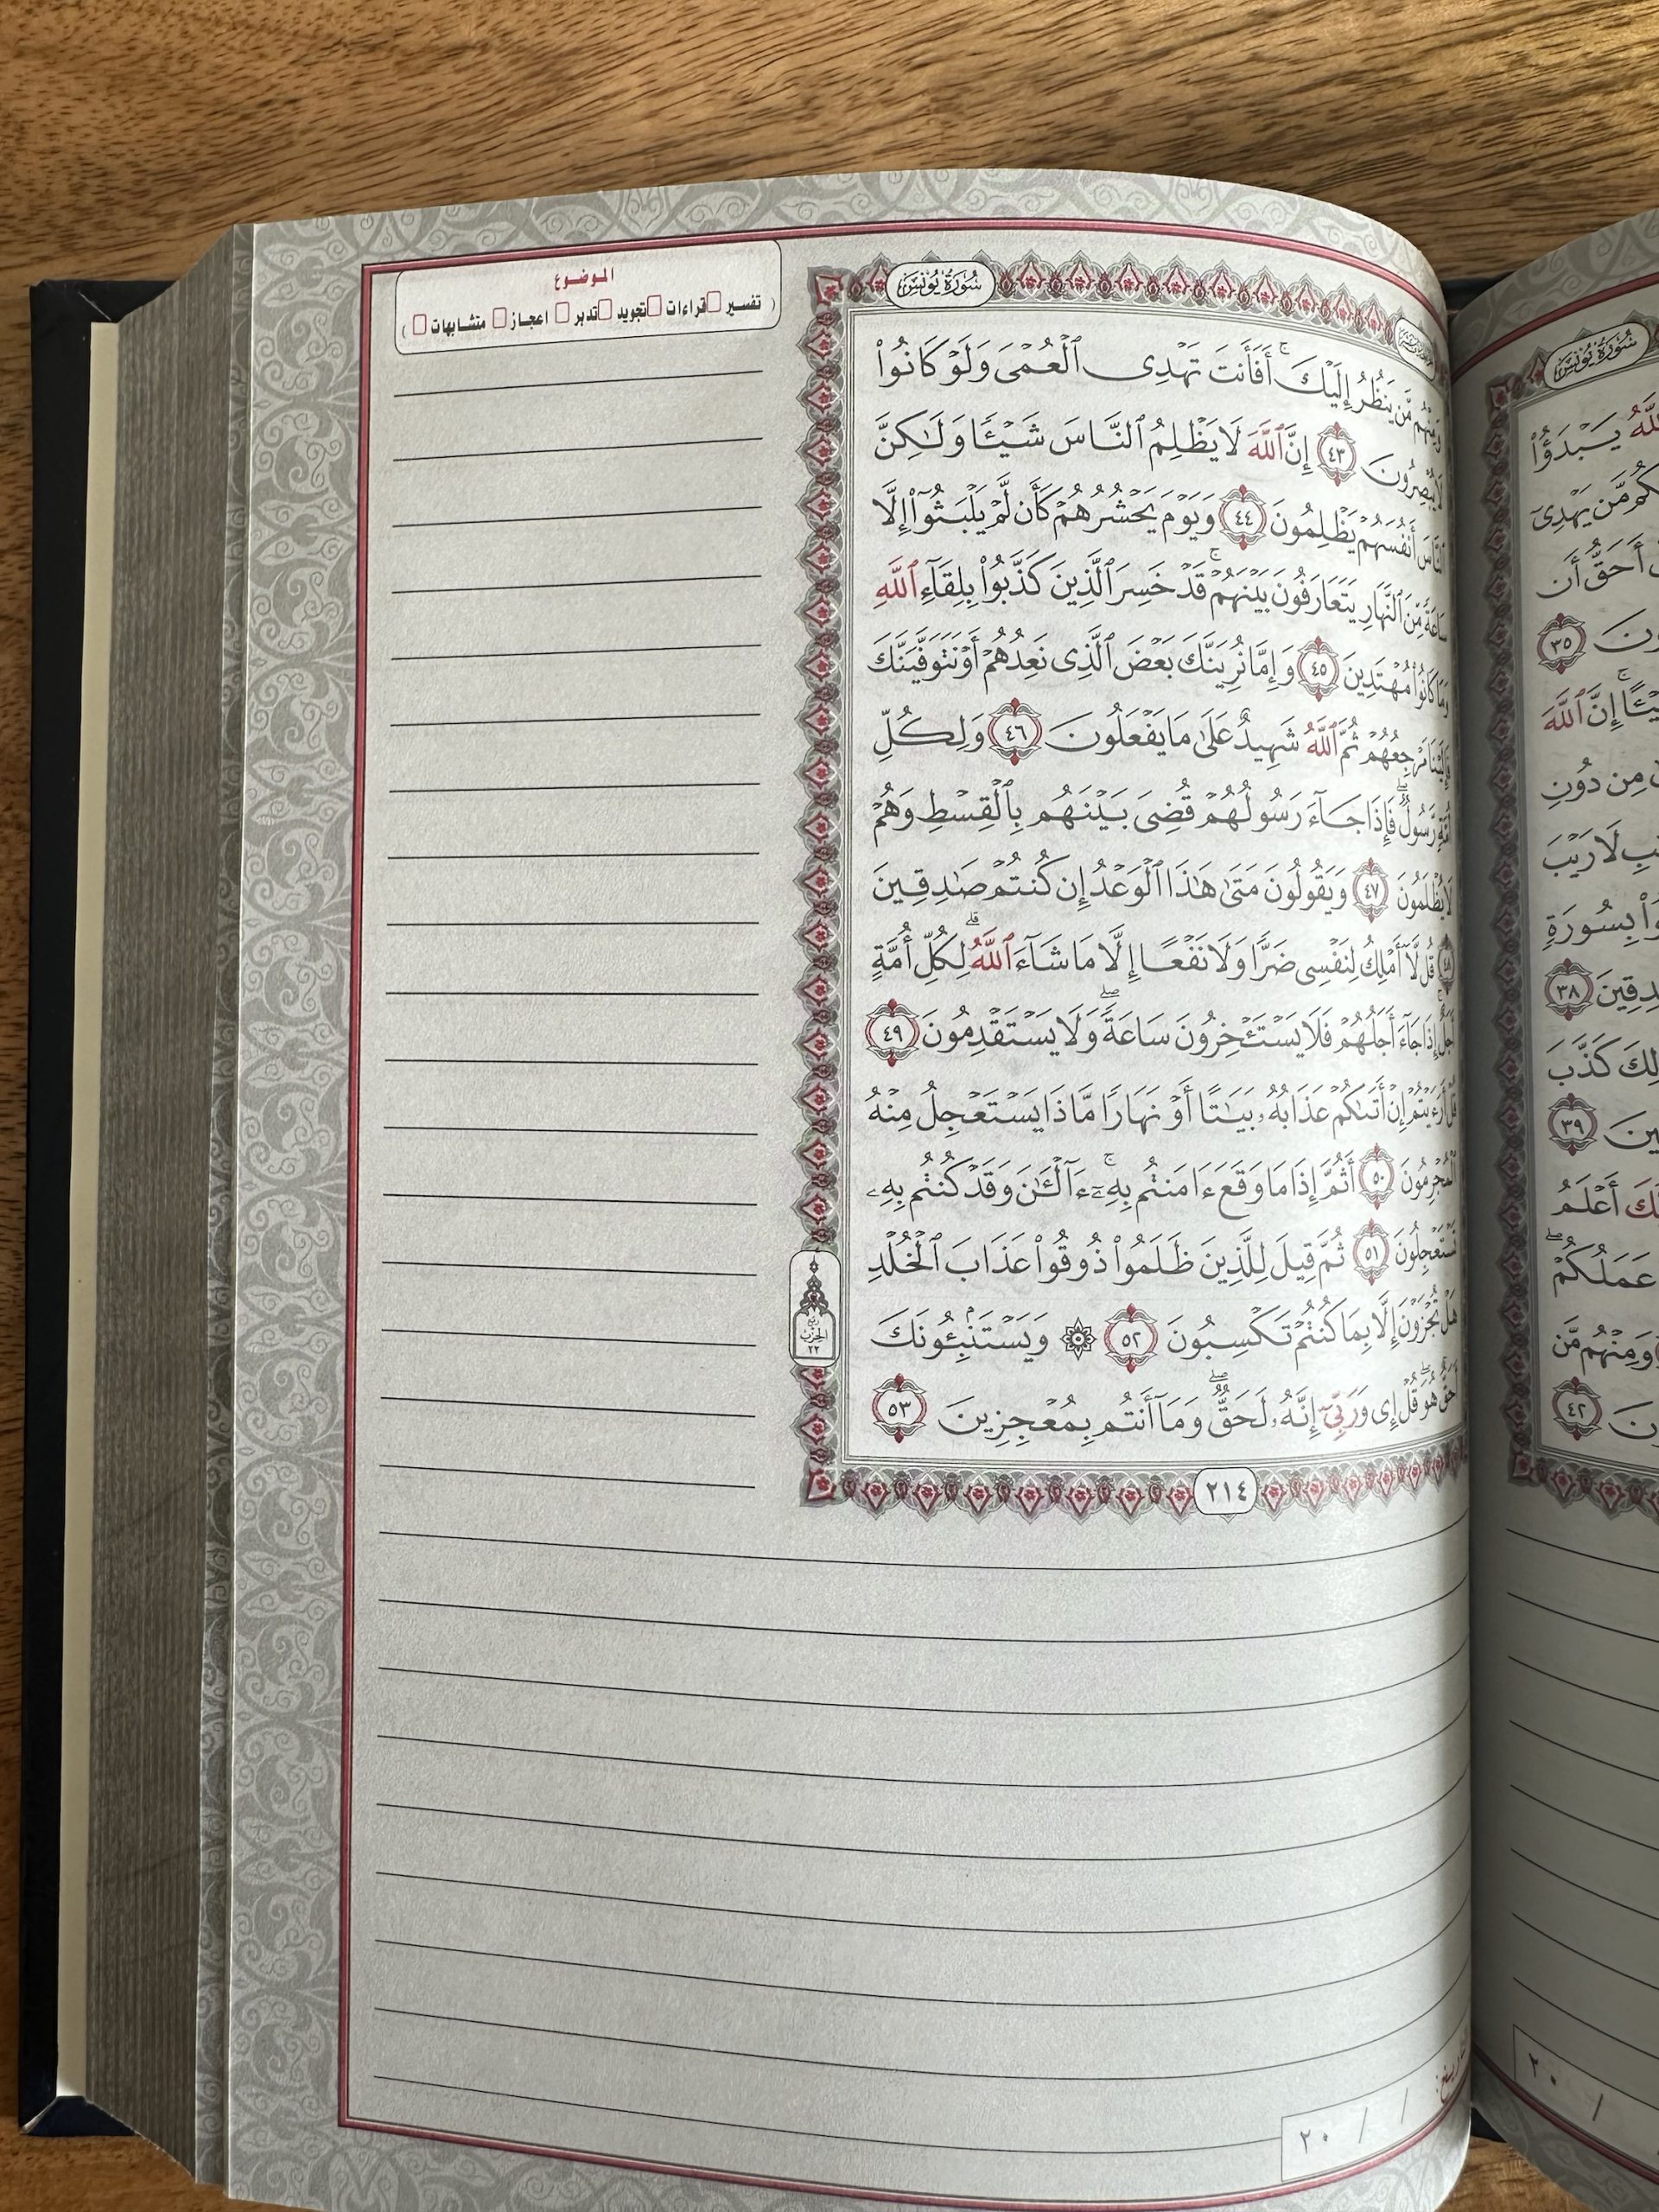 الموضوع
( تفسير قراءات تجويد تدبر اعجاز متشابهات )
سُورَةُ يُونُسَ
وَمِنْهُم مَّن يَنظُرُ إِلَيْكَ ۚ أَفَأَنتَ تَهْدِى ٱلْعُمْىَ وَلَوْ كَانُوا۟
لَا يُبْصِرُونَ ٤٣ إِنَّ ٱللَّهَ لَا يَظْلِمُ ٱلنَّاسَ شَيْـًٔا وَلَـٰكِنَّ
ٱلنَّاسَ أَنفُسَهُمْ يَظْلِمُونَ ٤٤ وَيَوْمَ يَحْشُرُهُمْ كَأَن لَّمْ يَلْبَثُوٓا۟ إِلَّا
سَاعَةً مِّنَ ٱلنَّهَارِ يَتَعَارَفُونَ بَيْنَهُمْ ۚ قَدْ خَسِرَ ٱلَّذِينَ كَذَّبُوا۟ بِلِقَآءِ ٱللَّهِ
وَمَا كَانُوا۟ مُهْتَدِينَ ٤٥ وَإِمَّا نُرِيَنَّكَ بَعْضَ ٱلَّذِى نَعِدُهُمْ أَوْ نَتَوَفَّيَنَّكَ
فَإِلَيْنَا مَرْجِعُهُمْ ثُمَّ ٱللَّهُ شَهِيدٌ عَلَىٰ مَا يَفْعَلُونَ ٤٦ وَلِكُلِّ
أُمَّةٍ رَّسُولٌ ۖ فَإِذَا جَآءَ رَسُولُهُمْ قُضِىَ بَيْنَهُم بِٱلْقِسْطِ وَهُمْ
لَا يُظْلَمُونَ ٤٧ وَيَقُولُونَ مَتَىٰ هَـٰذَا ٱلْوَعْدُ إِن كُنتُمْ صَـٰدِقِينَ
٤٨ قُل لَّآ أَمْلِكُ لِنَفْسِى ضَرًّا وَلَا نَفْعًا إِلَّا مَا شَآءَ ٱللَّهُ ۗ لِكُلِّ أُمَّةٍ
أَجَلٌ ۚ إِذَا جَآءَ أَجَلُهُمْ فَلَا يَسْتَـْٔخِرُونَ سَاعَةً ۖ وَلَا يَسْتَقْدِمُونَ ٤٩
قُلْ أَرَءَيْتُمْ إِنْ أَتَىٰكُمْ عَذَابُهُۥ بَيَـٰتًا أَوْ نَهَارًا مَّاذَا يَسْتَعْجِلُ مِنْهُ
ٱلْمُجْرِمُونَ ٥٠ أَثُمَّ إِذَا مَا وَقَعَ ءَامَنتُم بِهِۦٓ ۚ ءَآلْـَٔـٰنَ وَقَدْ كُنتُم بِهِۦ
تَسْتَعْجِلُونَ ٥١ ثُمَّ قِيلَ لِلَّذِينَ ظَلَمُوا۟ ذُوقُوا۟ عَذَابَ ٱلْخُلْدِ
هَلْ تُجْزَوْنَ إِلَّا بِمَا كُنتُمْ تَكْسِبُونَ ٥٢ ۞ وَيَسْتَنۢبِـُٔونَكَ
أَحَقٌّ هُوَ ۖ قُلْ إِى وَرَبِّىٓ إِنَّهُۥ لَحَقٌّ ۖ وَمَآ أَنتُم بِمُعْجِزِينَ ٥٣
ربع
الحزب
٢٢
٢١٤
/ / ٢٠
سُورَةُ يُونُسَ
يَبْدَؤُا۟
مَّن يَهْدِىٓ
أَحَقُّ أَن
٣٥
إِنَّ ٱللَّهَ
مِن دُونِ
لَا رَيْبَ
بِسُورَةٍ
٣٨
كَذَّبَ
٣٩
أَعْلَمُ
عَمَلُكُمْ ۖ
وَمِنْهُم مَّن
٤٢
/ ٢٠